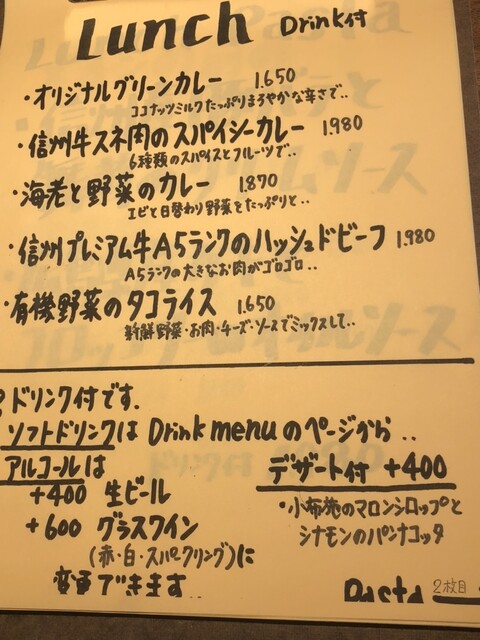 Lunch Drink付
・オリジナルグリーンカレー 1.650
ココナッツミルクたっぷりまろやかな辛さで..
・信州牛スネ肉のスパイシーカレー 1.980
6種類のスパイスとフルーツで..
・海老と野菜のカレー 1.870
エビと日替わり野菜をたっぷりと..
・信州プレミアム牛A5ランクのハッシュドビーフ 1.980
A5ランクの大きなお肉がゴロゴロ..
・有機野菜のタコライス 1.650
新鮮野菜・お肉・チーズ・ソースでミックスして..
ドリンク付です.
ソフトドリンクは Drink menuのページから..
アルコールは
+400 生ビール
+600 グラスワイン
(赤・白・スパークリング)に
変更できます..
デザート付 +400
・小布施のマロンシロップと
シナモンのパンナコッタ
Pasta 2枚目